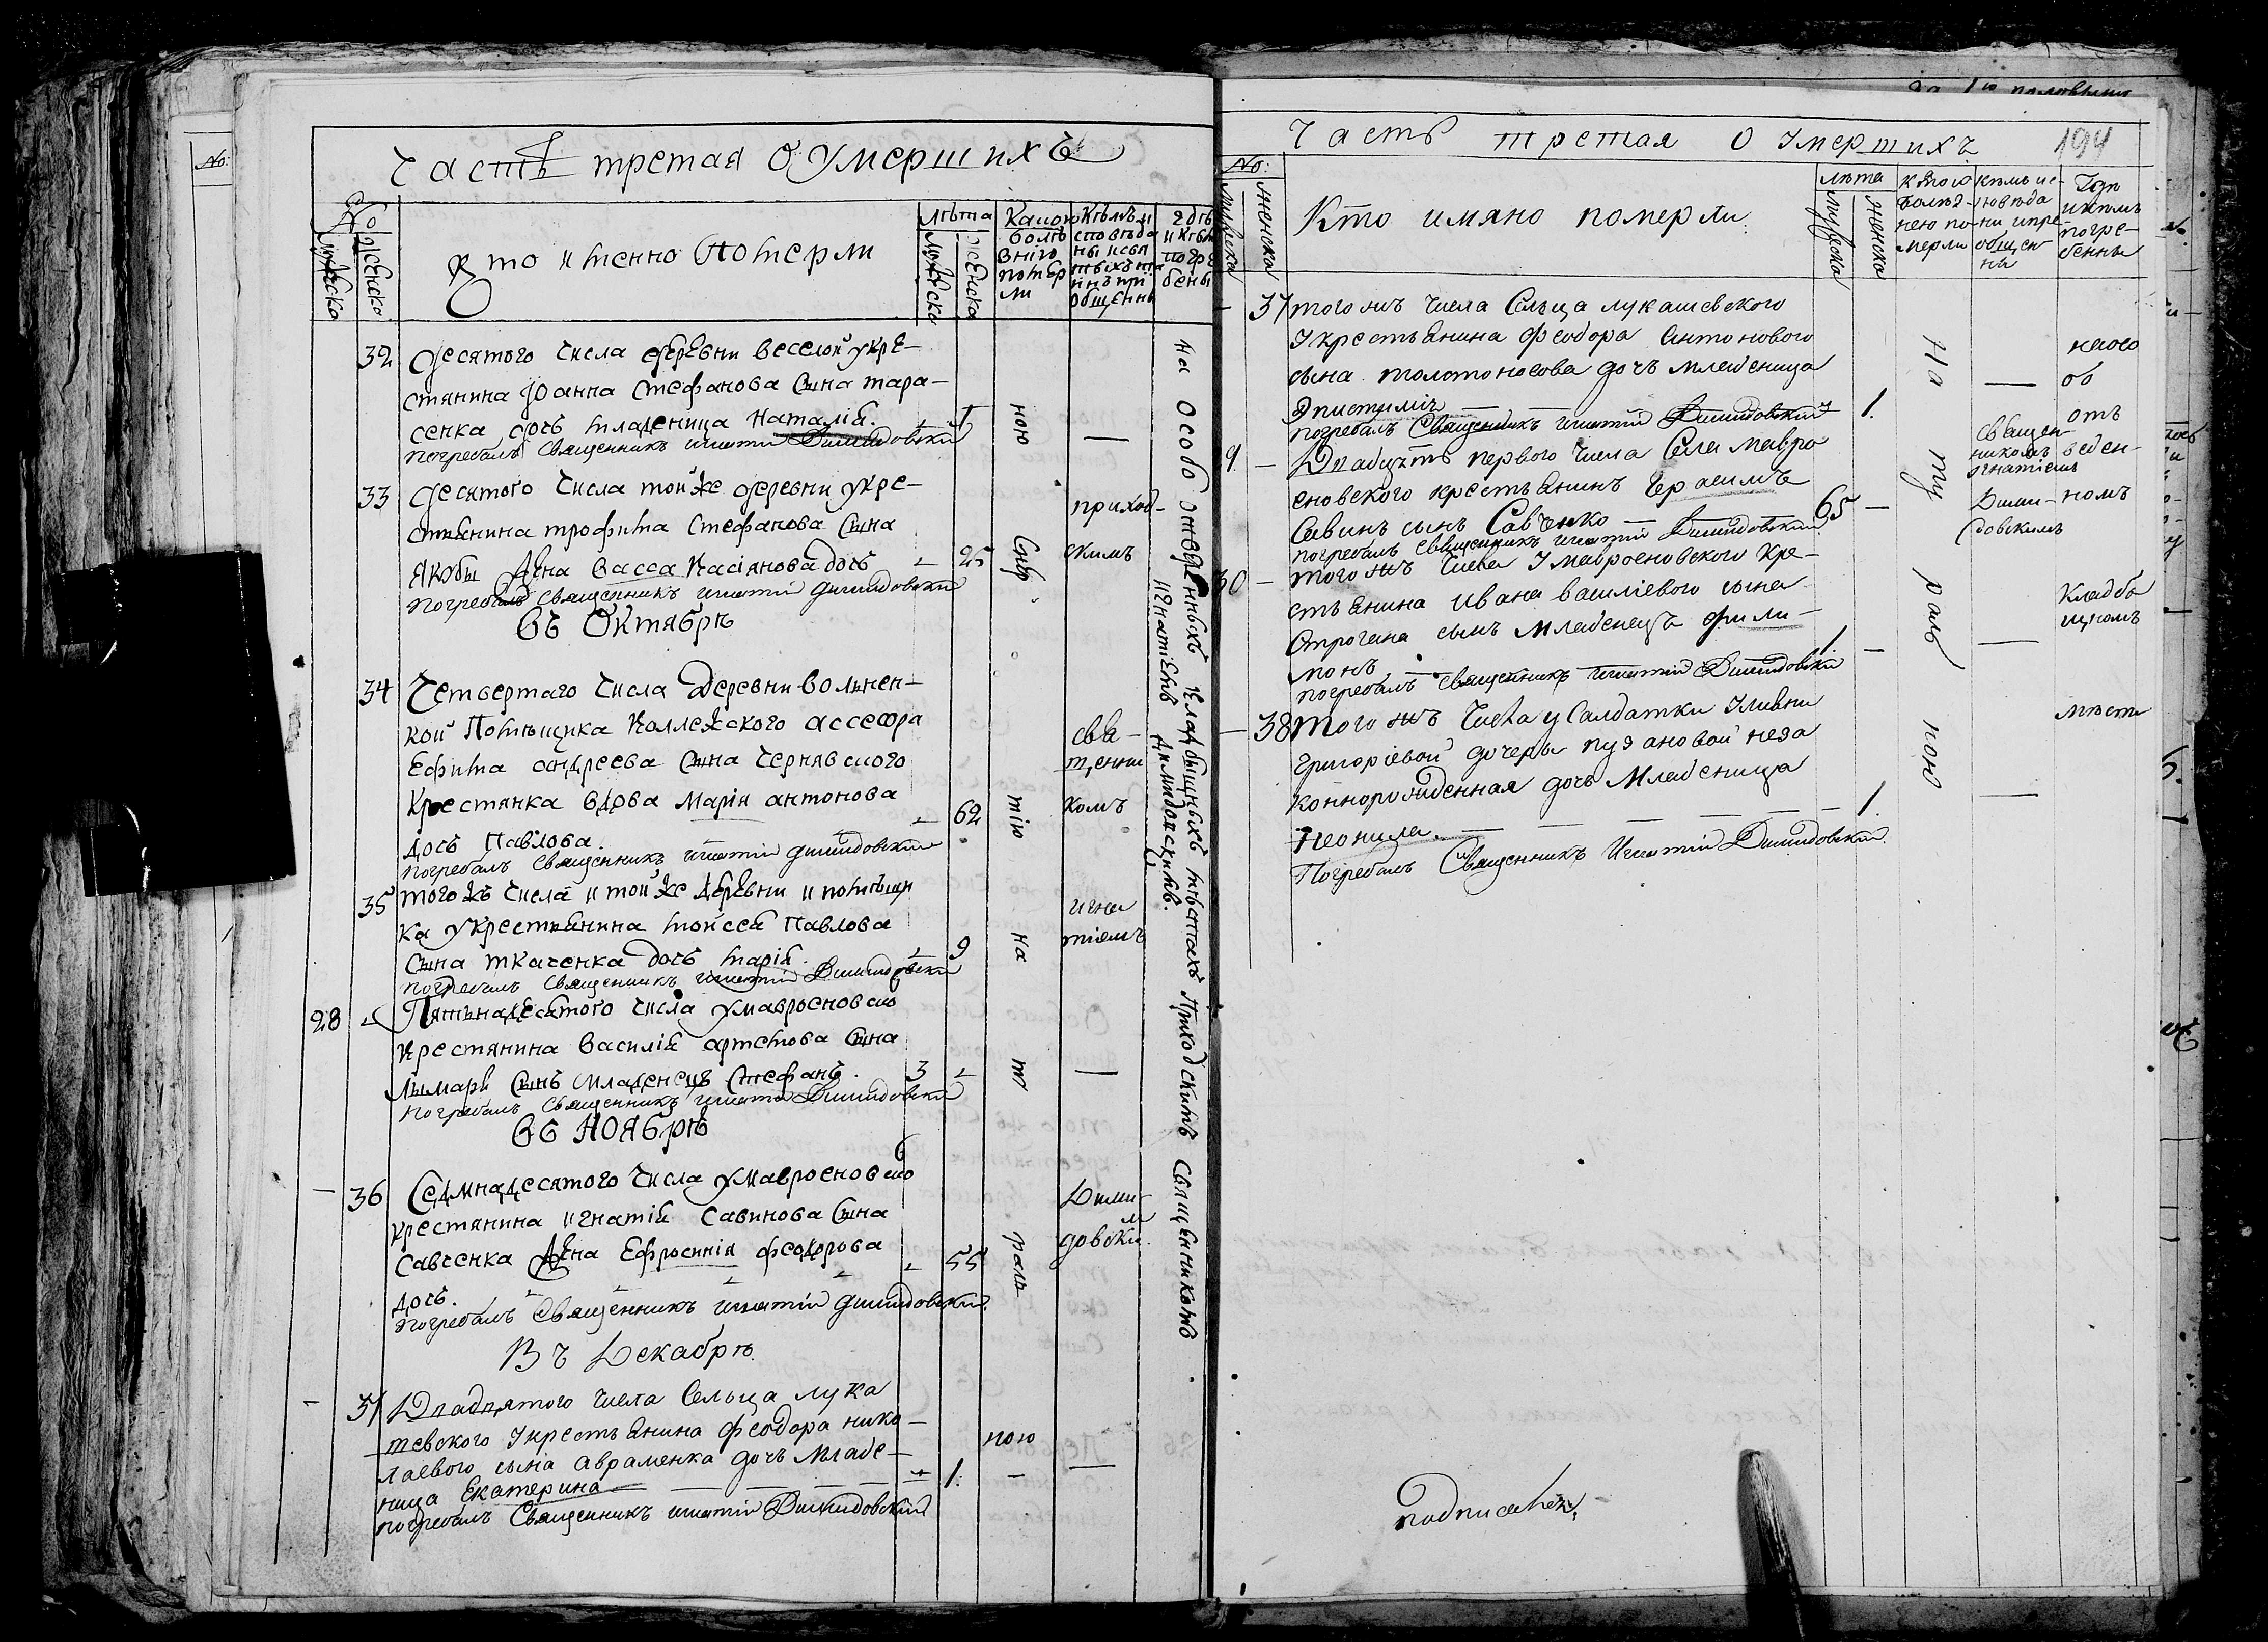 Часть третая о умершихъ
No
мужеска
женска
Кто именно Померли
лѣта
мужеска
женска
Какою
болѣ
зніго
помер
ли
Кѣмъ и
сповѣда
ны и свя
тыхъ та
инъ прі
общенны
гдѣ
и кѣм
погре
бены
32 Десятого Числа деревни веселой укре-
стянина Іоанна Стефанова Сына тара-
сенка дочь младеница Наталія. 1
погребалъ Священникъ игнатій Димидовскій
33 Десятого Числа той же деревни укре-
стянина трофима Стефанова Сына
Якубы жена Васса Касіянова дочь 25
погребалъ Священникъ игнатій димидовскій
Въ Октябрѣ
34 Четвертаго Числа Деревни вольнен-
кой Помѣщика Коллежского ассесора
Ефима андреева Сына Чернявского
Крестянка вдова Марія антонова 62
дочь Павлова.
погребалъ Священникъ игнатій димидовскій
35 того жъ Числа и той же деревни и помѣщи
ка укрестянина Мойсея Павлова
Сына ткаченка дочь Марія. 9
погребалъ Священникъ игнатій Димидовскій
28 Пятьнадесятого Числа умавроеновско
Крестянина Василія артемова Сына
Лымаря Сынъ Младенецъ Стефанъ. 3
погребалъ Священникъ игнатій Димидовскій
Въ Ноябрѣ
36 Седмнадесятого Числа умавроеновско
крестянина игнатія Савинова Сына
Савченка жена Ефросинія феодорова 55
дочь.
погребалъ Священникъ игнатій димидовскій
Въ Декабрѣ
37 Двадцятого Числа Сельца лука
шевского Укрестьянина Феодора нико-
лаевого сына авраменка дочь младе-
ница Екатерина 1.
погребалъ Священникъ игнатій Димидовскій
ною
на
т
раль
ною
приход-
скимъ
свя-
щенни
комъ
игна
тіемъ
Дими-
довским
на Особо отведенныхъ кладбищныхъ мѣстахъ Приходскимъ Священникомъ
игнатіемъ Димидовскимъ.
Часть третая о умершихъ
194
No:
мужеска
женска
Кто имяно померли
лѣта
мужеска
женска
какою
болѣз-
нею по-
мерли
кѣмъ ис-
повѣда
ни и прі
общен
ны
Где
и кѣмъ
погре-
бенны
37 того жъ Числа Сельца лукашевского
Укрестьянина Феодора Антонового
сына толстоносова дочъ младеница
Эпистиміа 1.
погребалъ Священникъ игнатій Димидовскій
9. Двадцять первого Числа Села мавро
еновского крестьянинъ Герасимъ
Савинъ сынъ Савченко 65
погребалъ Священникъ игнатій Димидовскій
30 того жъ Числа Умавроеновского кре-
стьянина ивана василіевого сына
Строгана сынъ младенецъ фили-
монъ 1
погребалъ Священникъ игнатій Димидовскій
38 того жъ Числа у Салдатки Уливни
григоріевой дочери пузановой неза
коннорожденная дочъ Младеница
Неонила. 1.
Погребалъ Священникъ Игнатій Димидовскій.
На
ту
раль
ною
священ-
никомъ
игнатіемъ
Дими-
довскимъ
на осо
бо
отъ
веден-
номъ
Кладбо
щномъ
мѣсти
подписаны